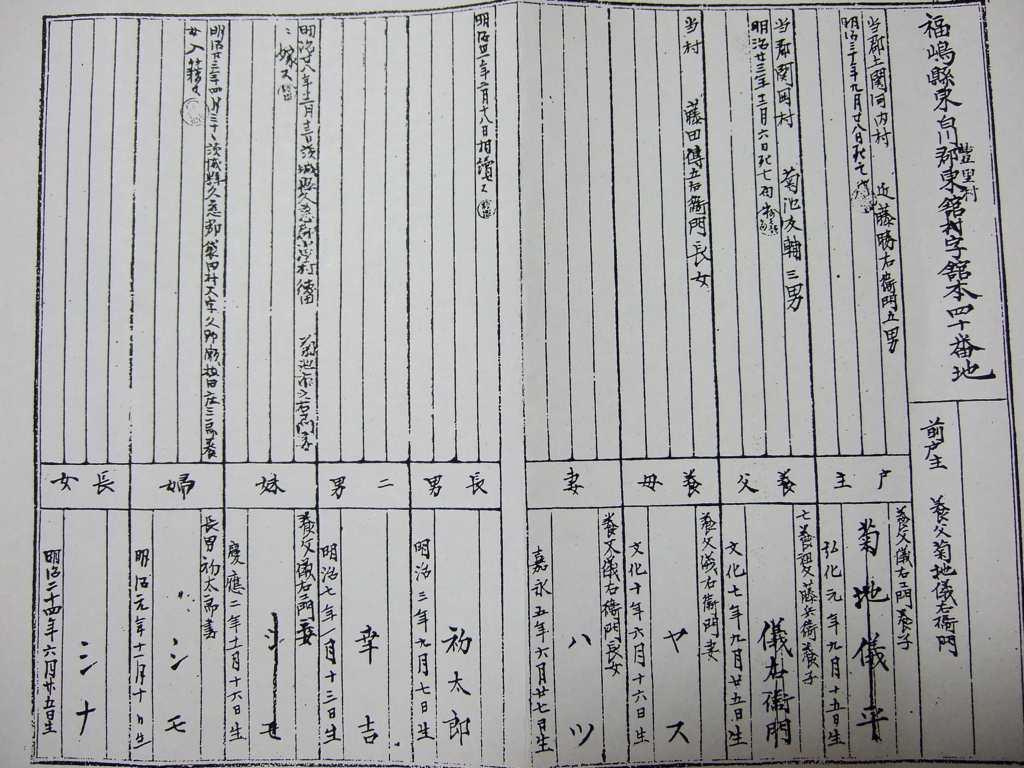 福嶋縣東白川郡東舘村字舘本四十番地
豊里村
前戸主 養父菊地儀右衛門
当郡上関河内村 近藤勝右衛門五男
明治三十年九月廿八日死亡
戸主
養父儀右衛門養子
菊地儀平
弘化元年九月十五日生
当郡関岡村 菊池友輔三男
明治廿三年十二月六日死亡
養父
亡養祖父藤兵衛養子
儀右衛門
文化七年九月廿五日生
当村 藤田傳五右衛門長女
養母
養父儀右衛門妻
ヤス
文化十年六月十六日生
妻
養父儀右衛門長女
ハツ
嘉永五年六月廿七日生
明治 年 月八日相續ス
長男
初太郎
明治三年九月七日生
二男
幸吉
明治七年一月十三日生
明治廿八年 月 日茨城縣久慈郡 村 菊池市之右衛門
ニ嫁ス
妹
養父儀右衛門
慶應二年十二月十六日生
明治廿三年四月三十日茨城縣久慈郡袋田村大字久野瀬 庄三郎養
女入籍ス
婦
長男初太郎妻
シモ
明治元年十二月十日生
長女
シナ
明治二十四年六月廿五日生